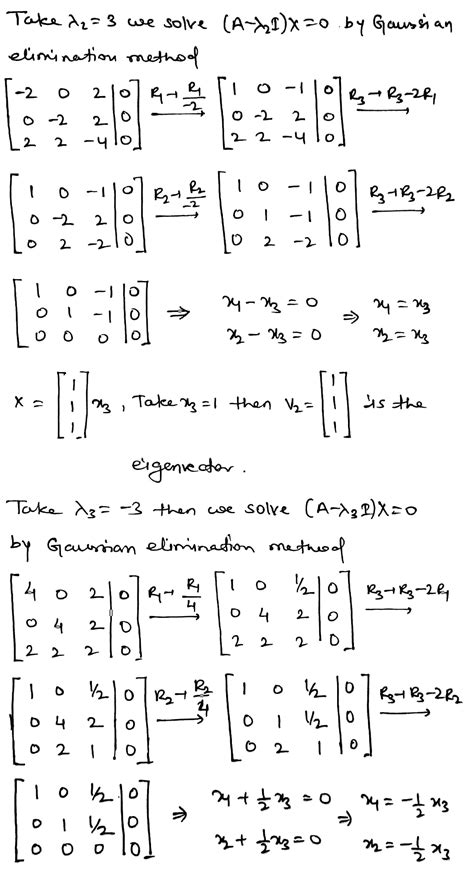 Take λ₂ = 3 we solve (A-λ₂I)X=0 by Gaussian
elimination method
[-2 0 2 | 0; 0 -2 2 | 0; 2 2 -4 | 0] R₁→R₁/-2 [1 0 -1 | 0; 0 -2 2 | 0; 2 2 -4 | 0] R₃→R₃-2R₁
[1 0 -1 | 0; 0 -2 2 | 0; 0 2 -2 | 0] R₂→R₂/-2 [1 0 -1 | 0; 0 1 -1 | 0; 0 2 -2 | 0] R₃→R₃-2R₂
[1 0 -1 | 0; 0 1 -1 | 0; 0 0 0 | 0] ⇒ x₁-x₃=0 ⇒ x₁=x₃
x₂-x₃=0 x₂=x₃
X = [1; 1; 1] x₃, Take x₃=1 then V₂= [1; 1; 1] is the
eigenvector.
Take λ₃= -3 then we solve (A-λ₃I)X=0
by Gaussian elimination method
[4 0 2 | 0; 0 4 2 | 0; 2 2 2 | 0] R₁→R₁/4 [1 0 1/2 | 0; 0 4 2 | 0; 2 2 2 | 0] R₃→R₃-2R₁
[1 0 1/2 | 0; 0 4 2 | 0; 0 2 1 | 0] R₂→R₂/4 [1 0 1/2 | 0; 0 1 1/2 | 0; 0 2 1 | 0] R₃→R₃-2R₂
[1 0 1/2 | 0; 0 1 1/2 | 0; 0 0 0 | 0] ⇒ x₁+1/2x₃=0 ⇒ x₁=-1/2x₃
x₂+1/2x₃=0 x₂=-1/2x₃